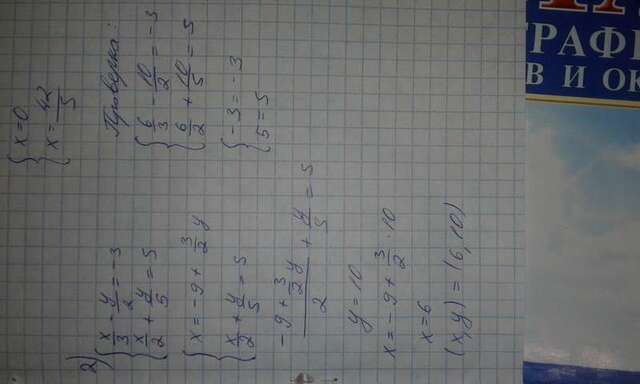 { x = 0
{ x = 42/5
2)
{ x/3 - y/2 = -3
{ x/2 + y/5 = 5
{ x = -9 + 3/2 y
{ x/2 + y/5 = 5
(-9 + 3/2 y)/2 + y/5 = 5
y = 10
x = -9 + 3/2 · 10
x = 6
(x, y) = (6, 10)
Проверка:
{ 6/3 - 10/2 = -3
{ 6/2 + 10/5 = 5
{ -3 = -3
{ 5 = 5
РАФ
В И ОК